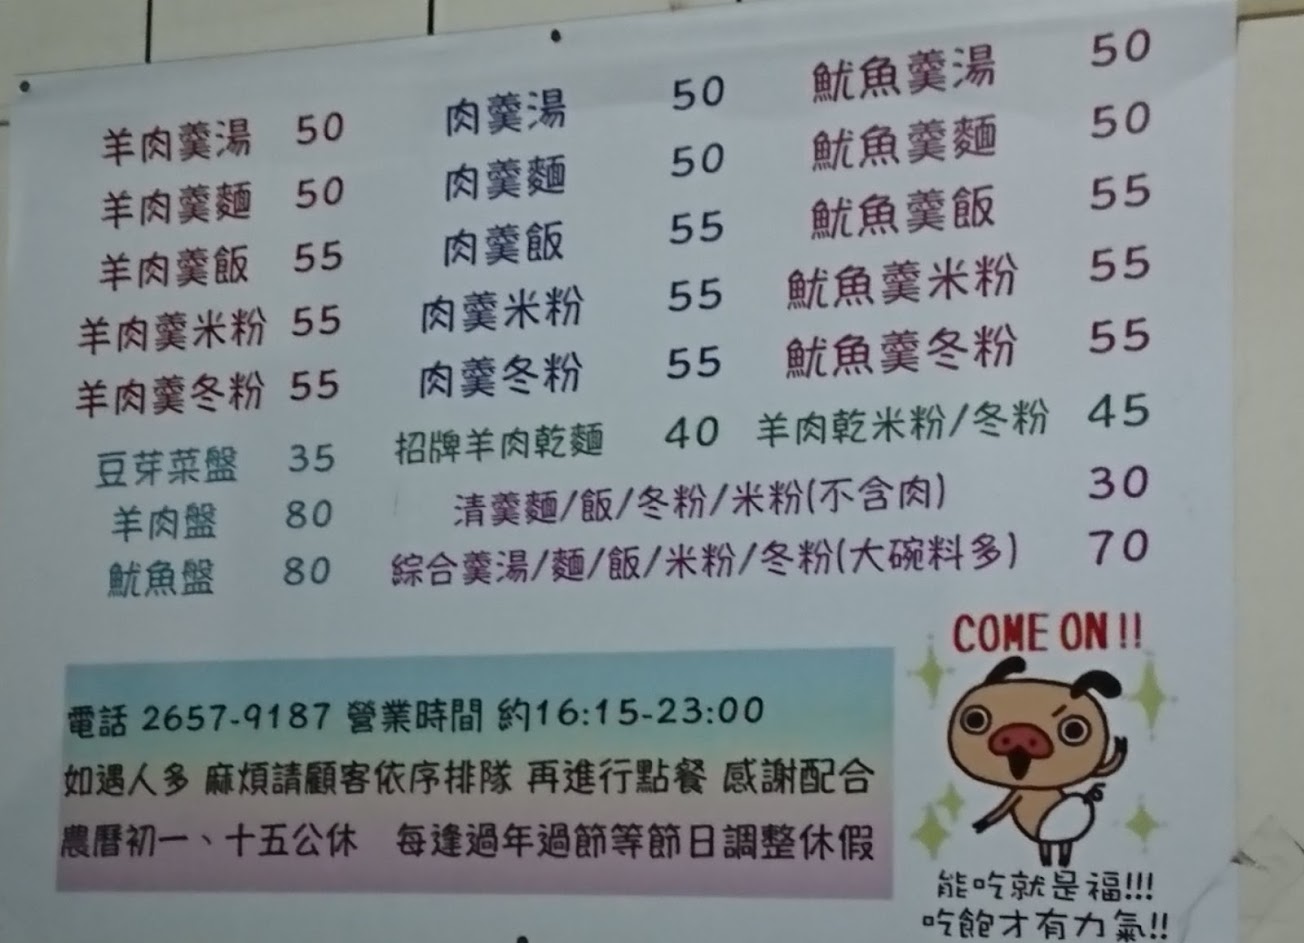 羊肉羹湯 50 肉羹湯 50 魷魚羹湯 50
羊肉羹麵 50 肉羹麵 50 魷魚羹麵 50
羊肉羹飯 55 肉羹飯 55 魷魚羹飯 55
羊肉羹米粉 55 肉羹米粉 55 魷魚羹米粉 55
羊肉羹冬粉 55 肉羹冬粉 55 魷魚羹冬粉 55
豆芽菜盤 35 招牌羊肉乾麵 40 羊肉乾米粉/冬粉 45
羊肉盤 80 清羹麵/飯/冬粉/米粉(不含肉) 30
魷魚盤 80 綜合羹湯/麵/飯/米粉/冬粉(大碗料多) 70
電話 2657-9187 營業時間 約16:15-23:00
如遇人多 麻煩請顧客依序排隊 再進行點餐 感謝配合
農曆初一、十五公休 每逢過年過節等節日調整休假
COME ON!!
能吃就是福!!!
吃飽才有力氣!!